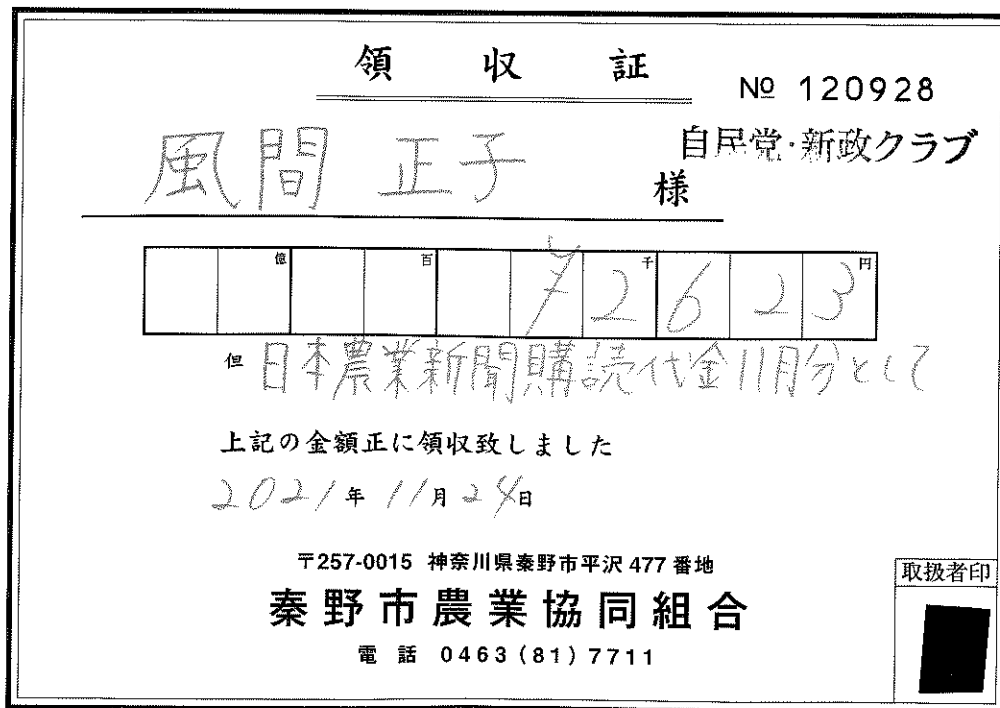 領収証
№ 120928
自民党・新政クラブ
風間 正子 様
億 百 千 円
¥2623
但 日本農業新聞購読代金11月分として
上記の金額正に領収致しました
2021年11月24日
〒257-0015 神奈川県秦野市平沢477番地
秦野市農業協同組合
電話 0463(81)7711
取扱者印